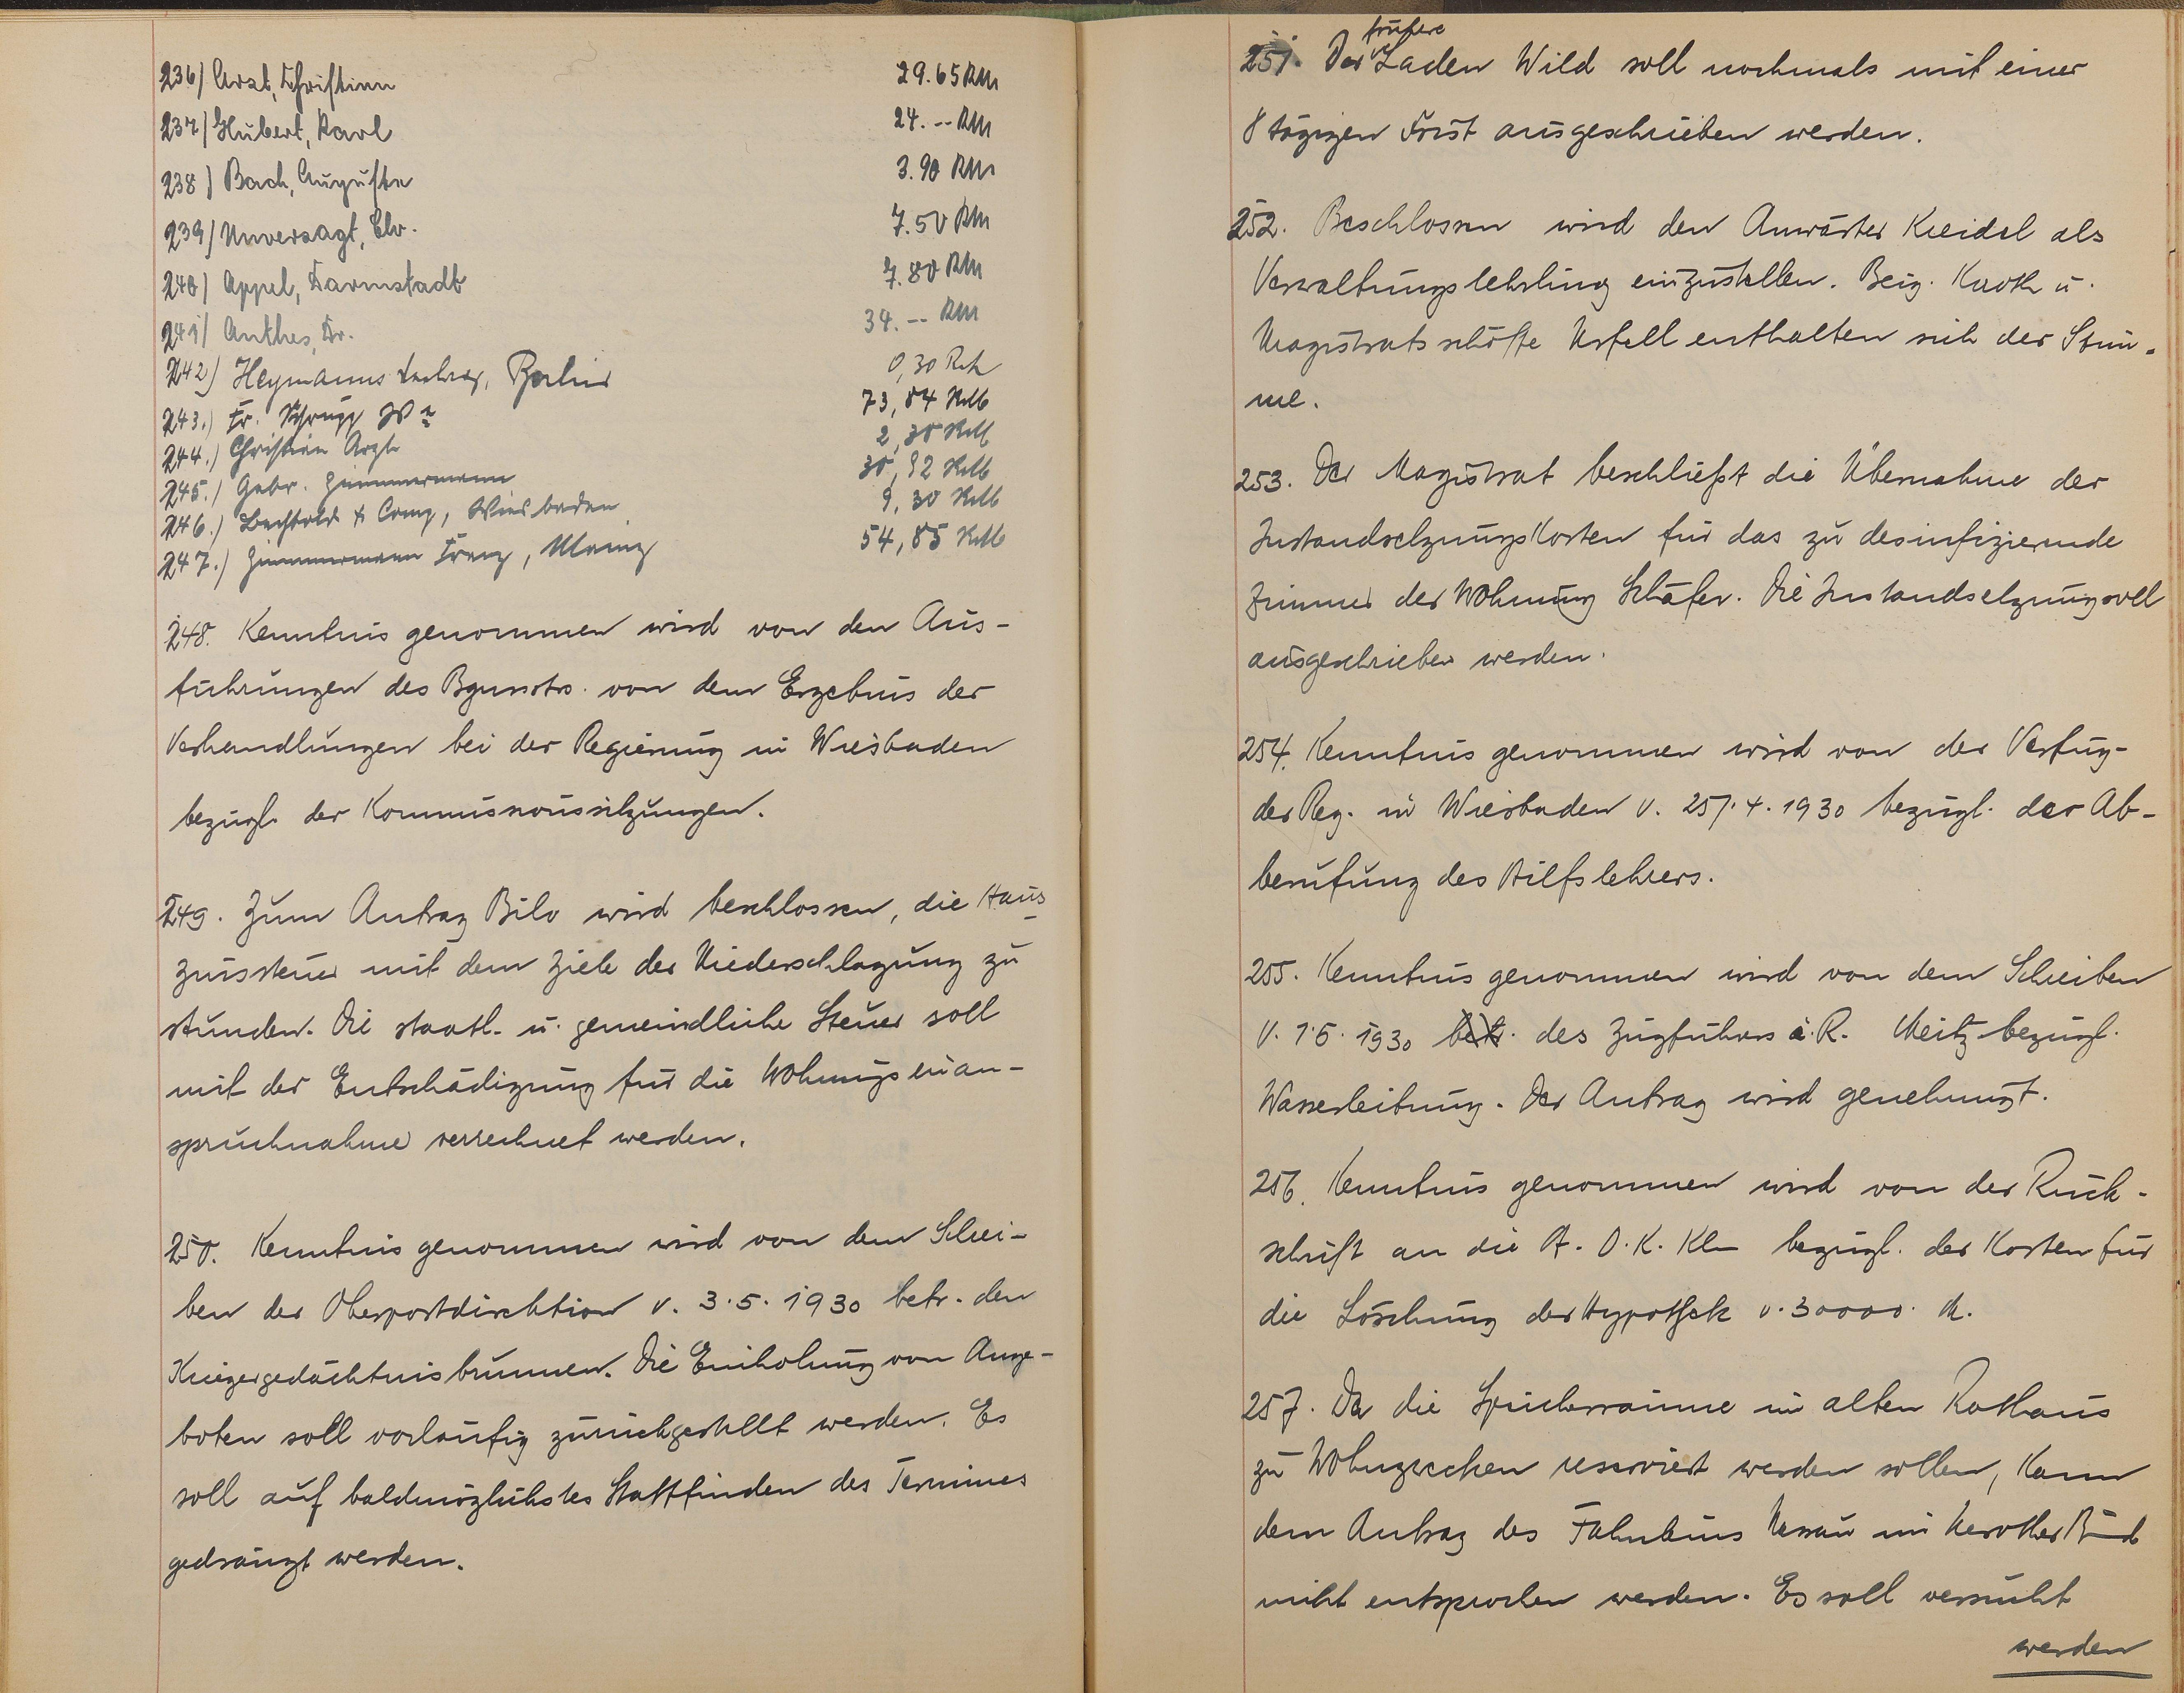 236) Arzt, Christian 29.65 RM
237) Hubert, Karl 24.-- RM
238) Bach, Auguste 3.90 RM
239) Unverzagt, Elv. 7.50 RM
240) Appel, Darmstadt 7.80 RM
241) Anthes, Dr. 34.-- RM
242) Heymanns Verlag, Berlin 0,30 RM
243.) Fr. Schrupp 73,84 RM
244.) Christian Arzt 2,30 RM
245.) Gebr. Zimmermann 30,92 RM
246.) Bechtold & Comp, Wiesbaden 9,30 RM
247.) Zimmermann Franz, Mainz 54,85 RM
248. Kenntnis genommen wird von den Aus-
führungen des Bgmstrs. von dem Ergebnis der
Verhandlungen bei der Regierung in Wiesbaden
bezügl. der Kommissionssitzungen.
249. Zum Antrag Bilo wird beschlossen, die Haus-
zinssteuer mit dem Ziele der Niederschlagung zu
stunden. Die staatl. u. gemeindliche Steuer soll
mit der Entschädigung für die Wohnungsinan-
spruchnahme verrechnet werden.
250. Kenntnis genommen wird von dem Schrei-
ben der Oberpostdirektion v. 3.5.1930 betr. den
Kriegergedächtnisbrunnen. Die Einholung von Ange-
boten soll vorläufig zurückgestellt werden. Es
soll auf baldmöglichstes Stattfinden des Termines
gedrängt werden.
251. Der frühere Laden Wild soll nochmals mit einer
8 tägigen Frist ausgeschrieben werden.
252. Beschlossen wird den Anwärter Kreidel als
Verwaltungslehrling einzustellen. Beig. Knoth u.
Magistratsschöffe Urfell enthalten sich der Stim-
me.
253. Der Magistrat beschließt die Übernahme der
Instandsetzungskosten für das zu desinfizierende
Zimmer der Wohnung Schäfer. Die Instandsetzung soll
ausgeschrieben werden.
254. Kenntnis genommen wird von der Verfüg-
der Reg. in Wiesbaden v. 25.4.1930 bezügl. der Ab-
berufung des Hilfslehrers.
255. Kenntnis genommen wird von dem Schreiben
v. 1.5.1930 betr. des Zugführers a. R. Meitz bezügl.
Wasserleitung. Der Antrag wird genehmigt.
256. Kenntnis genommen wird von der Rück-
schrift an die A.O.K. bezügl. der Kosten für
die Löschung der Hypothek v. 30000. M.
257. Da die Speicherräume im alten Rathaus
zu Wohnzwecken reserviert werden sollen, kann
dem Antrag des Fähnleins Nassau im Nerother Bund
nicht entsprochen werden. Es soll versucht
werden